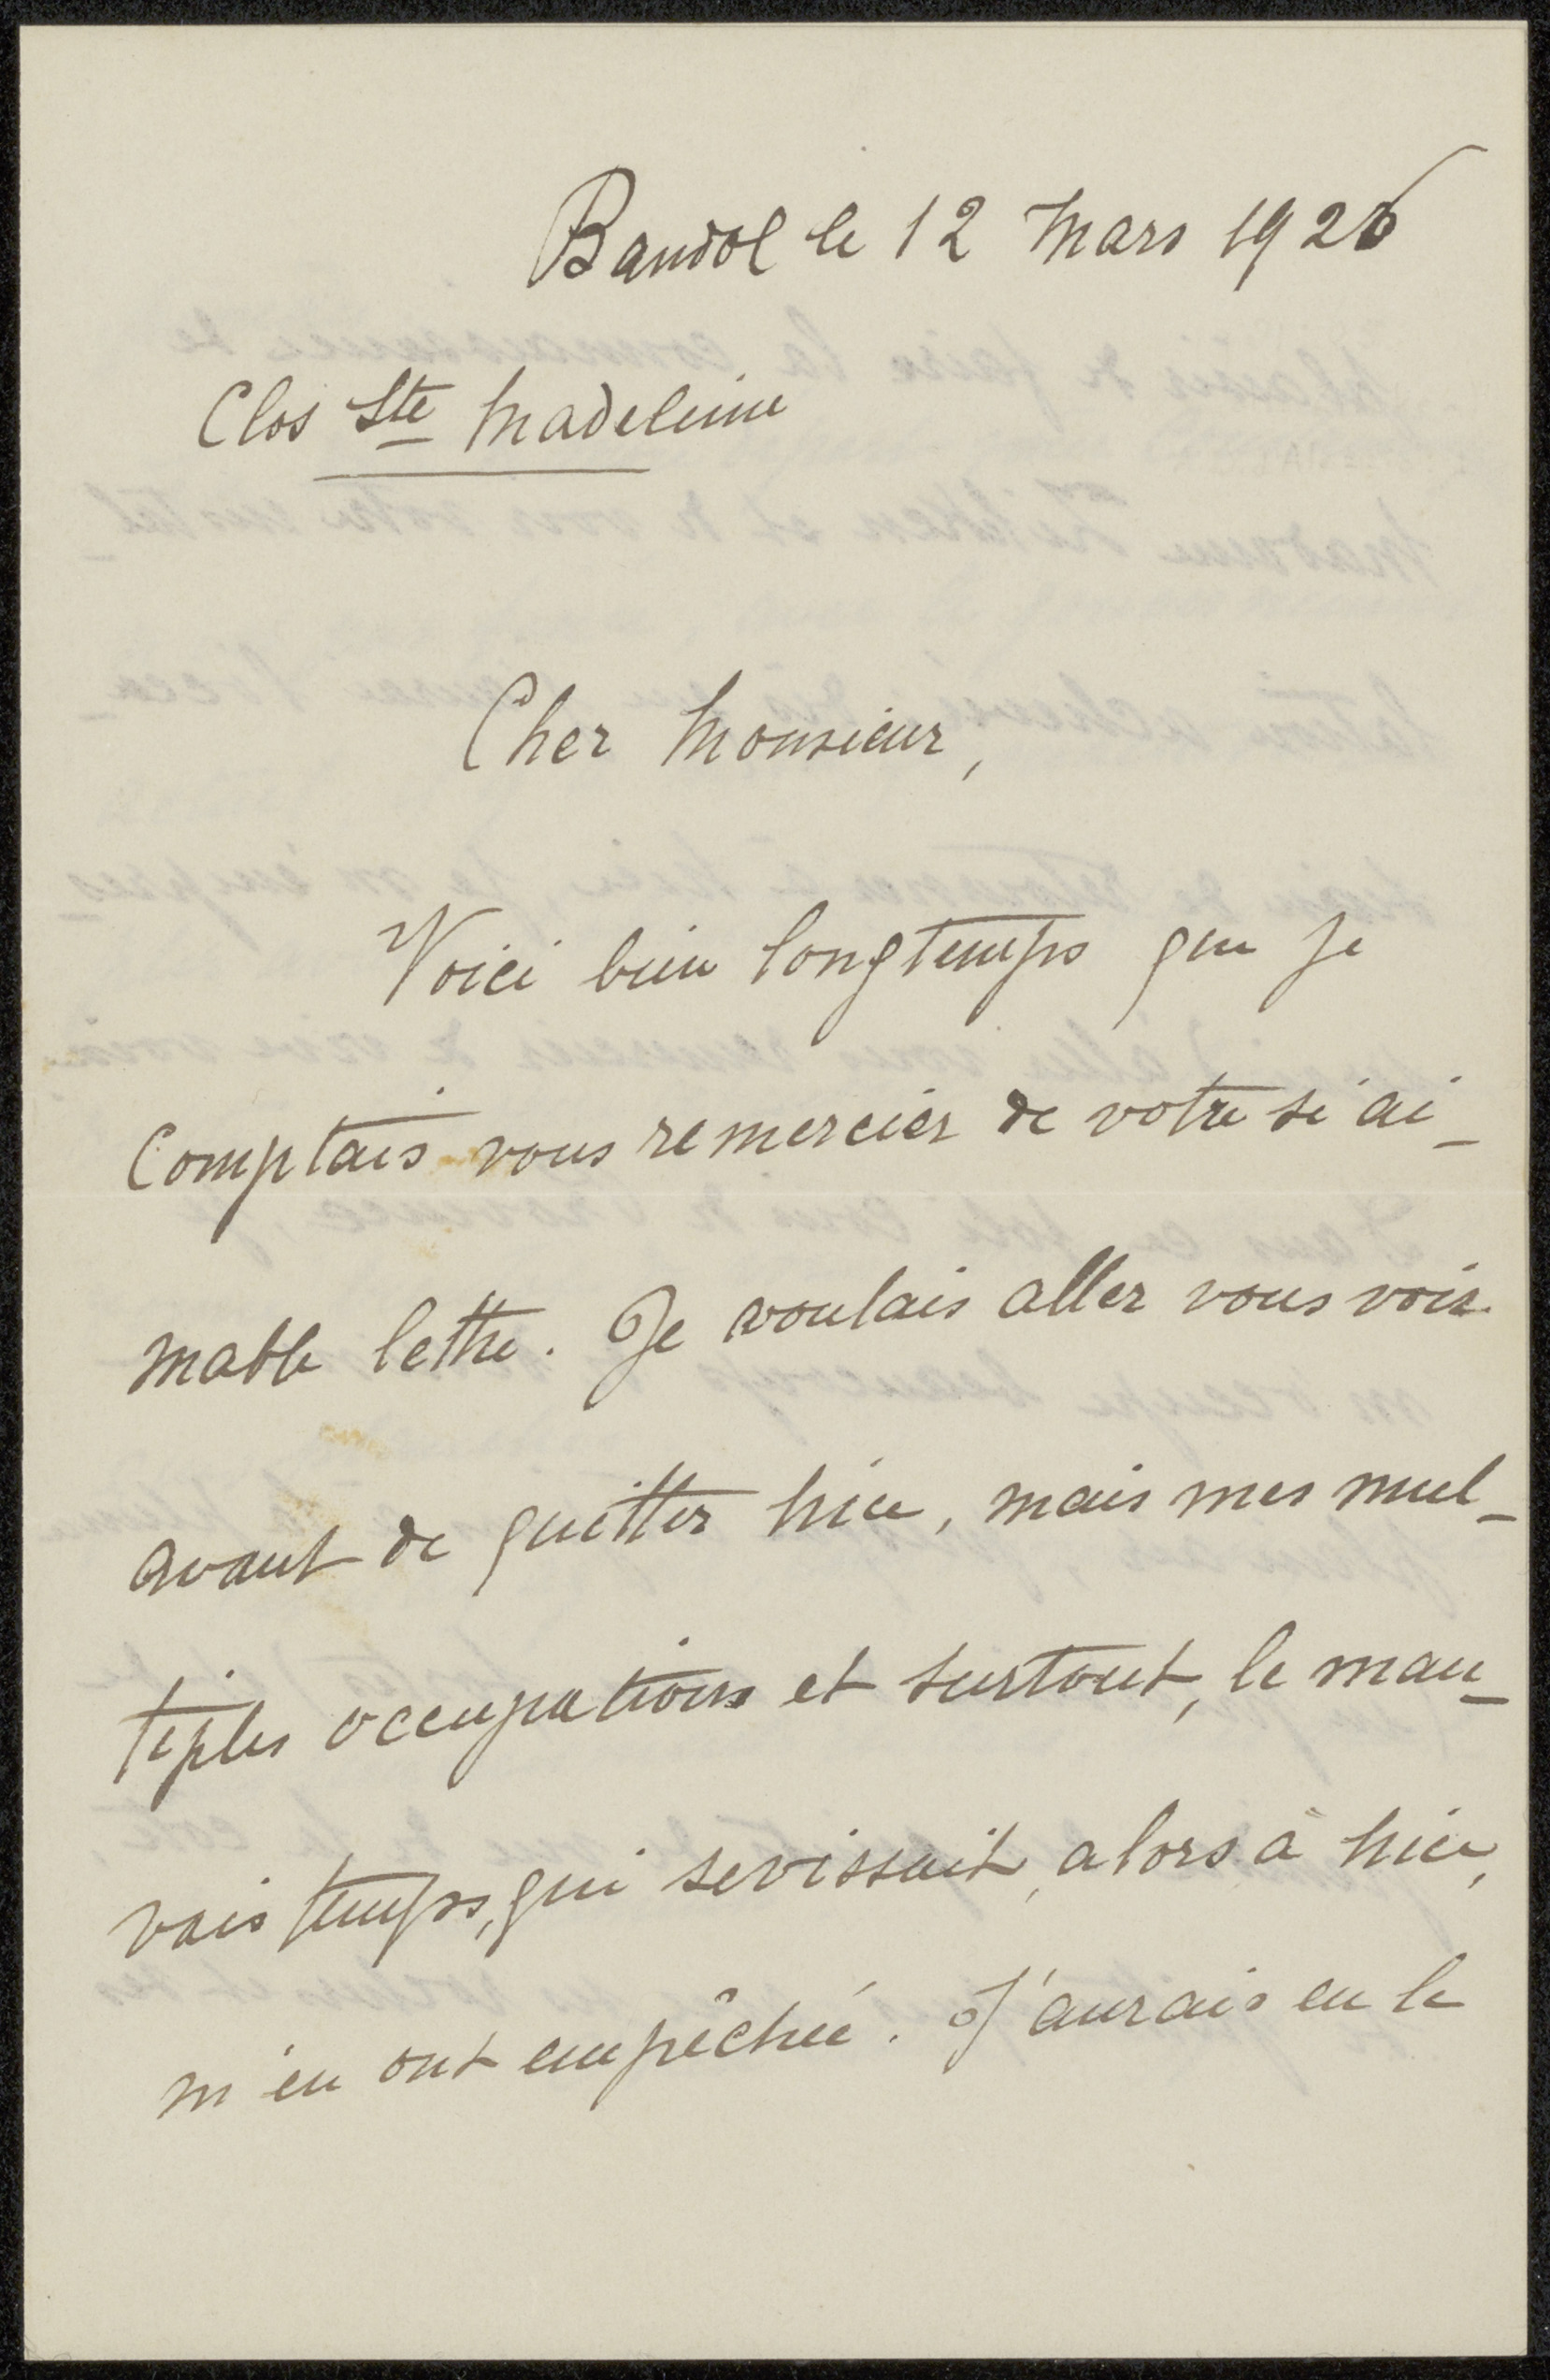 Bandol le 12 Mars 1926
Clos Ste Madeleine
Cher Monsieur,
Voici bien longtemps que je
comptais vous remercier de votre si ai-
mable lettre. Je voulais aller vous voir
avant de quitter Nice, mais mes mul-
tiples occupations et surtout, le mau-
vais temps, qui sevissait, alors à Nice,
m'en ont empêchée. J'aurais eu le